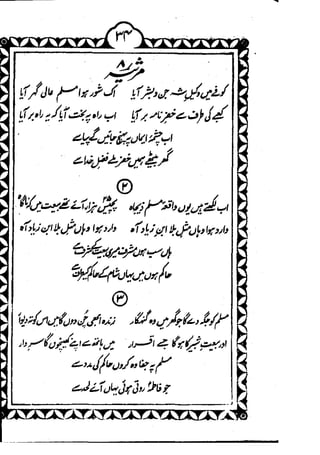 ۳۴
مرثیہ ۸
کوفے میں وکیل شہ جن و بشر آیا اک شور ہوا مسلم عالی گہر آیا
کعبے کی طرف سے خضر نامہ بر آیا اب راہ پہ بخت آیا کہ یہ راہ بر آیا
اب چشمۂ ایماں پہ پہنچ جائیں گے پیاسے
گھر بیٹھے ہمیں خضر ملے فضل خدا سے
۲
اب لکھتے ہیں یوں واقعہ مسلم ذیجاہ ہزار آئے تھے بیعت میں
وارد ہوا وہاں مثل بلا ابن زیاد آہ وارد ہوا وہاں مثل بلا ابن زیاد آہ
ہاں سب ہوں مشرف مری بیعت کے شرف سے
حاکم ہوں میں یہاں شام کے حاکم کی طرف سے
۳
مسلم کو جگہ دے گا جو گھر میں وہ گنہگار زندہ اسی چن دوں گا میں اس کو تہ دیوار
اور بیعت شبیر کا ہوگا جسے اقرار میں ہاتھ سے اپنے کھینچوں گا سر دار
مسلم پہ جفا وہ کروں حاکم کی مدد سے
جو فاطمہ روتی ہوئی یہاں آئے لحد سے